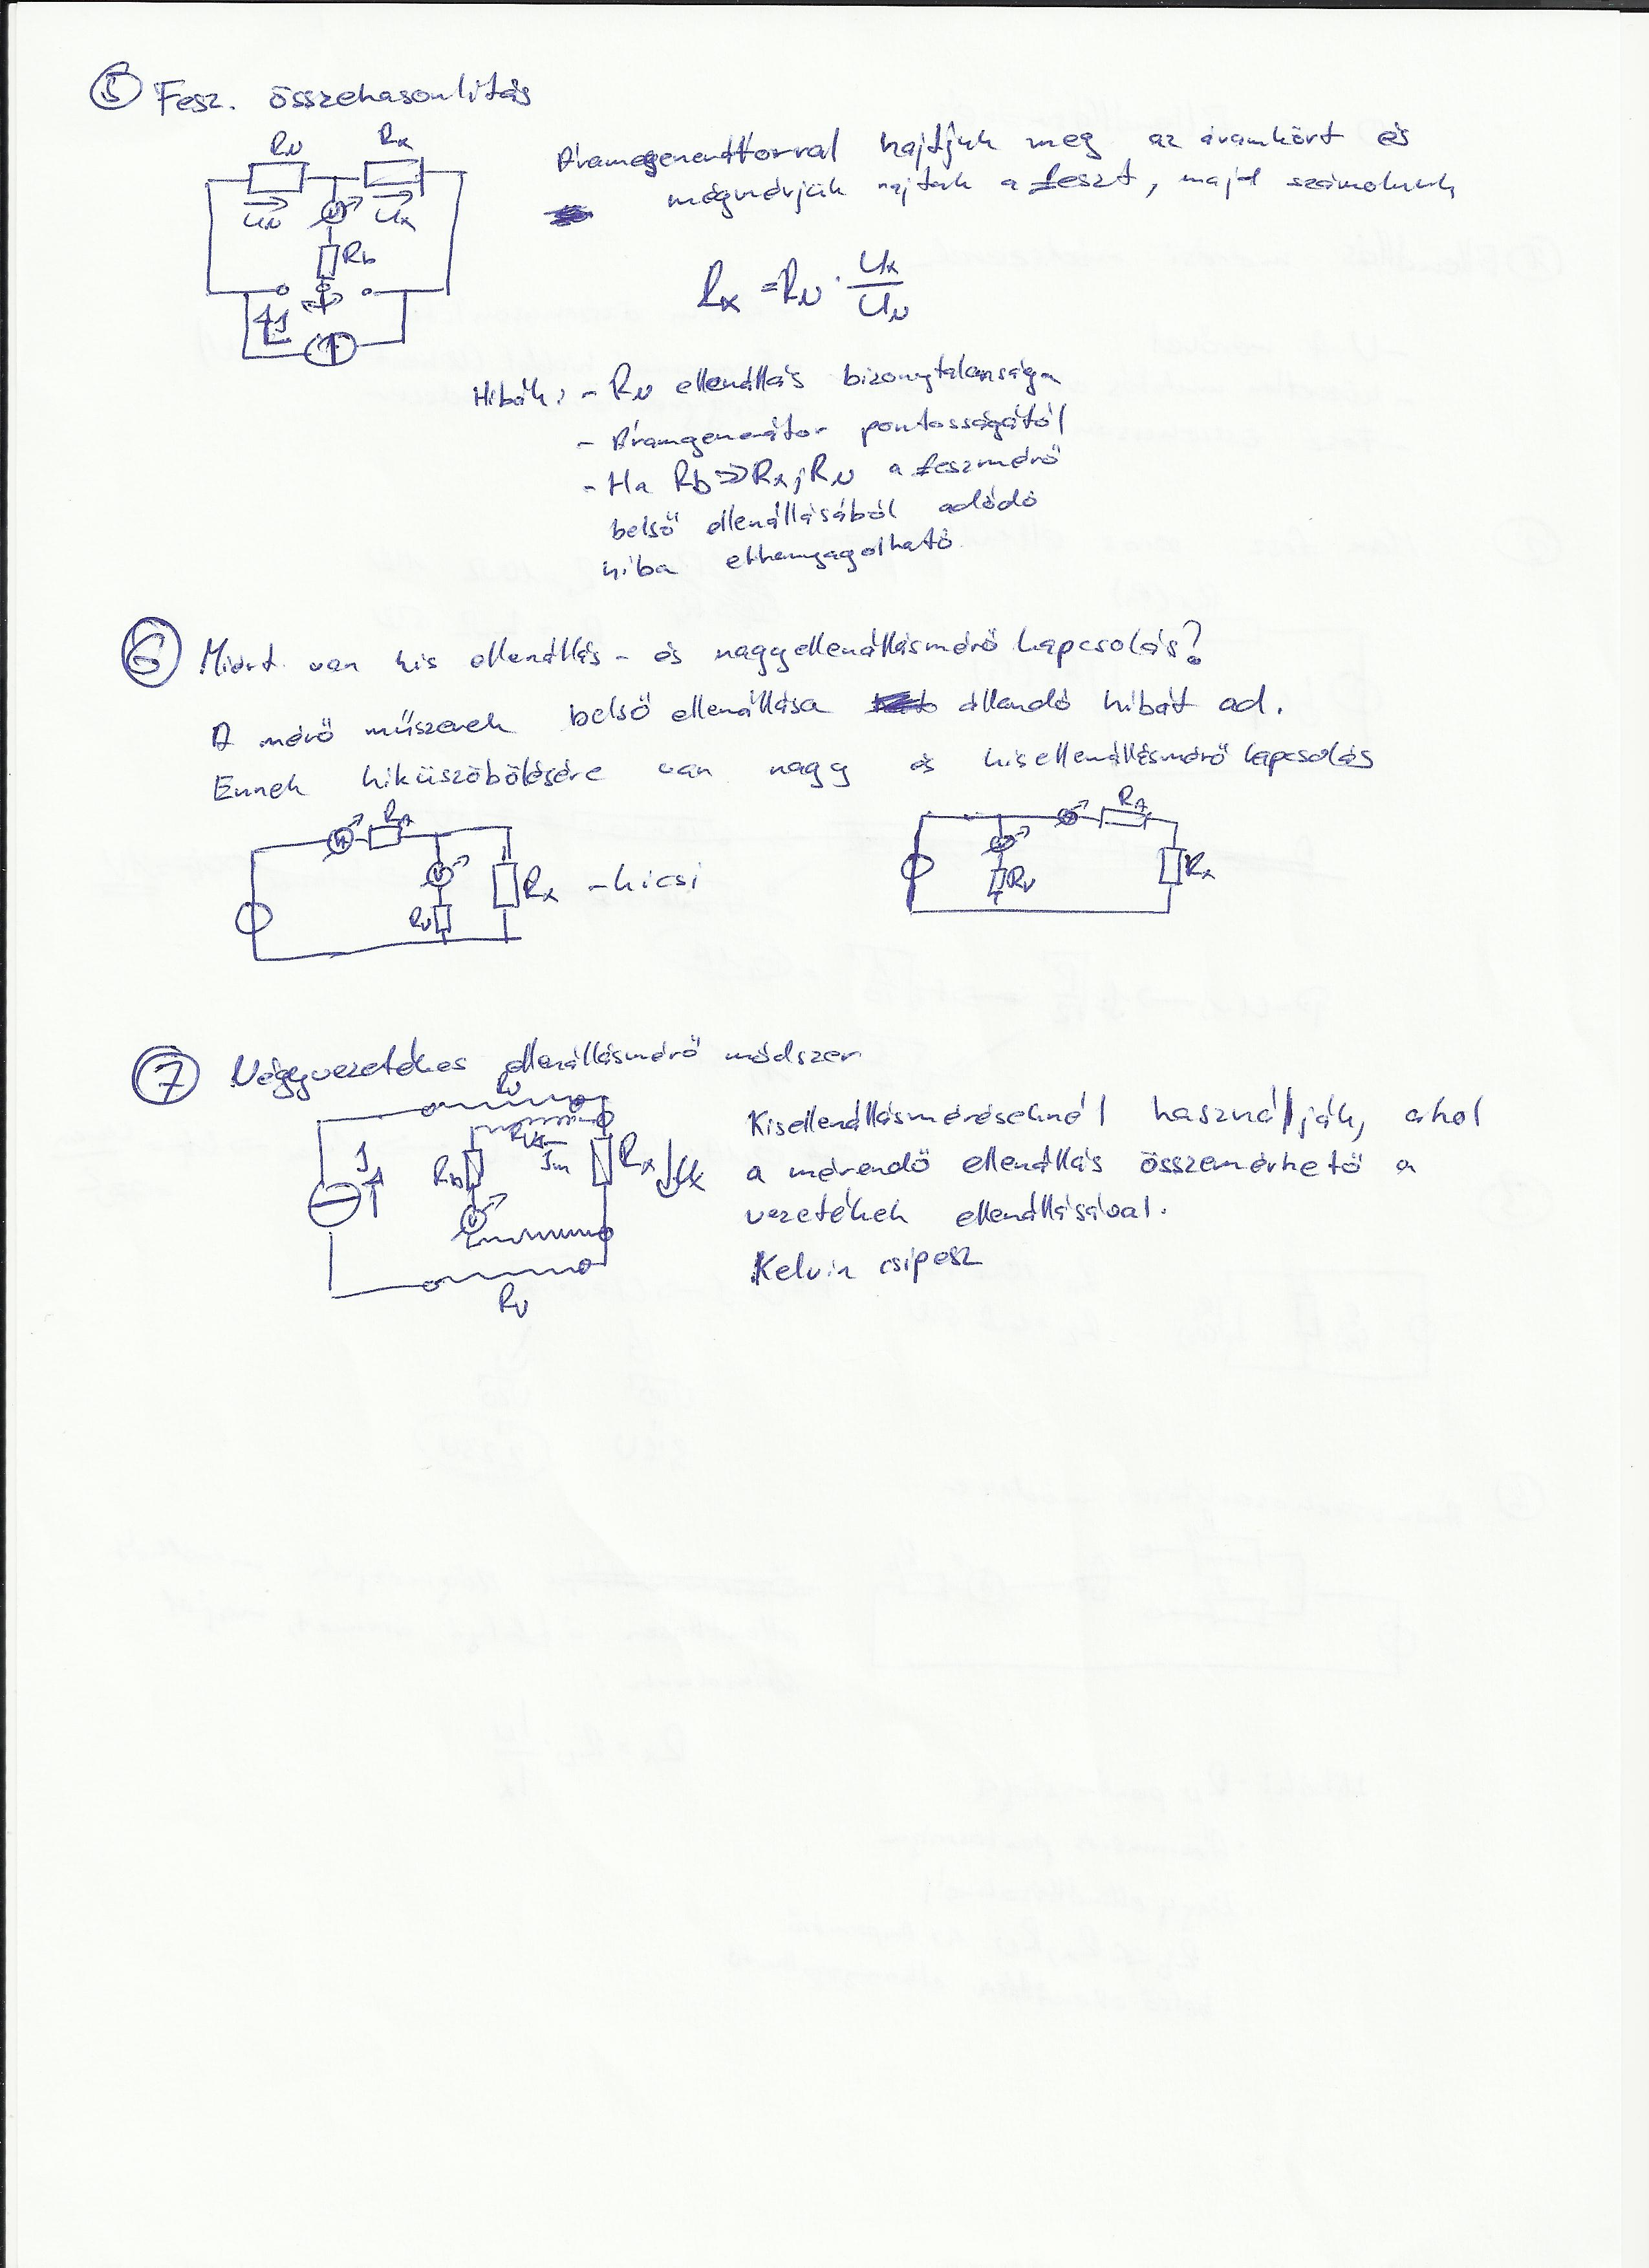 ⑤ Fesz. összehasonlítás
RN Rx
UN Ux
Rb
Áramgenerátorral hajtjuk meg az áramkört és
megmérjük rajtuk a feszt, majd számolunk
Rx = RN · Ux / UN
Hibák: - RN ellenállás bizonytalansága
- Áramgenerátor pontosságától
- Ha Rb >> Rx, RN a feszmérő
belső ellenállásából adódó
hiba elhanyagolható
⑥ Miért van kis ellenállás- és nagyellenállásmérő kapcsolás?
A mérő műszerek belső ellenállása állandó hibát ad.
Ennek kiküszöbölésére van nagy és kisellenállásmérő kapcsolás
A RA
V
RV
Rx - kicsi
RA
RV
Rx
⑦ Négyvezetékes ellenállásmérő módszer
Rv
I
Rb
Im
Rx Ux
V
Rv
Kisellenállásméréseknél használják, ahol
a mérendő ellenállás összemérhető a
vezetékek ellenállásával.
Kelvin csipesz